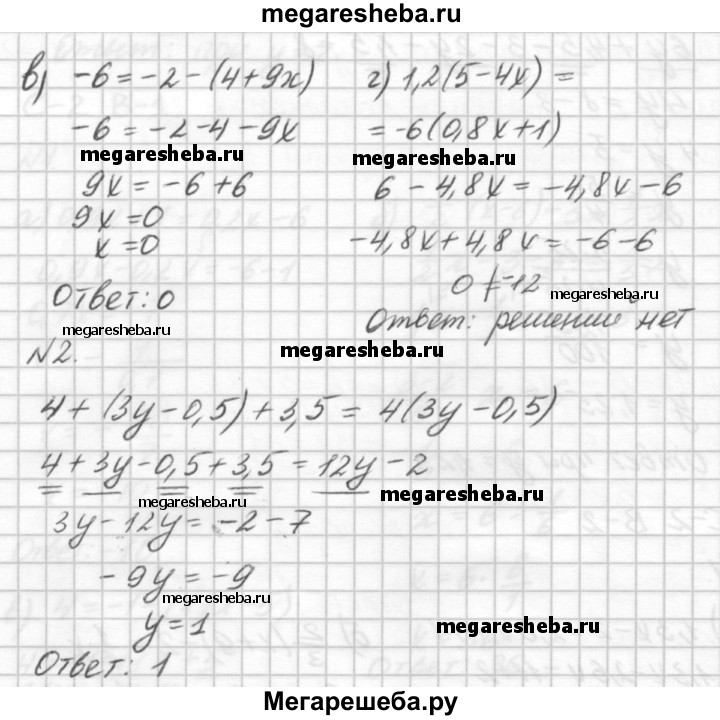 megaresheba.ru
в) -6 = -2 - (4 + 9x)
-6 = -2 - 4 - 9x
megaresheba.ru
9x = -6 + 6
9x = 0
x = 0
Ответ: 0
megaresheba.ru
г) 1,2(5 - 4x) =
= -6(0,8x + 1)
megaresheba.ru
6 - 4,8x = -4,8x - 6
-4,8x + 4,8x = -6 - 6
0 ≠ -12
megaresheba.ru
Ответ: решений нет
megaresheba.ru
№2.
4 + (3y - 0,5) + 3,5 = 4(3y - 0,5)
4 + 3y - 0,5 + 3,5 = 12y - 2
megaresheba.ru
megaresheba.ru
3y - 12y = -2 - 7
-9y = -9
megaresheba.ru
y = 1
megaresheba.ru
Ответ: 1
Мегарешеба.ру